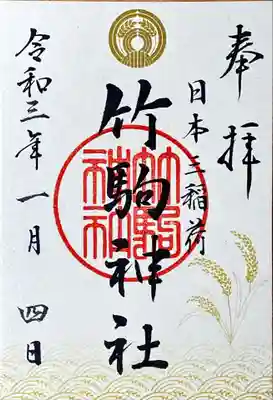 奉拝
日本三稲荷
竹駒神社
竹駒神社
令和三年一月 四日